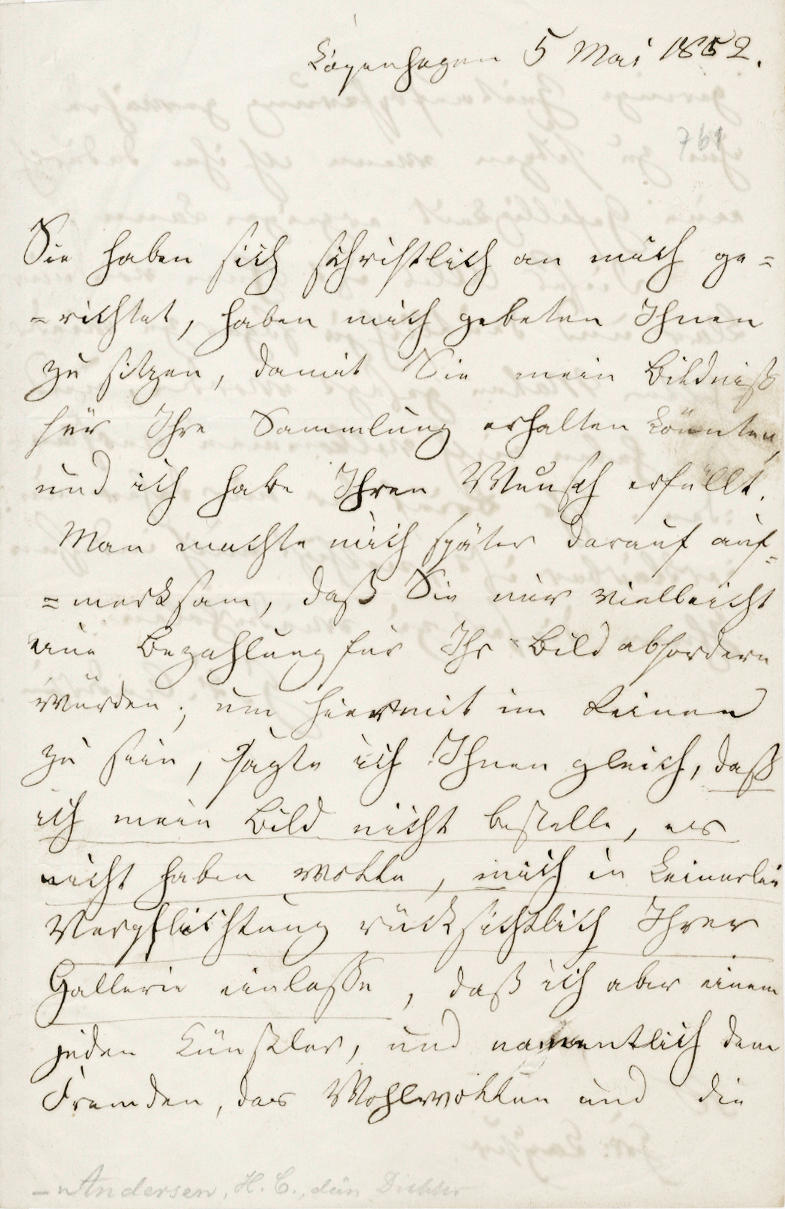 Kopenhagen 5 Mai 1852.
761
Sie haben sich schriftlich an mich ge=
=richtet, haben mich gebeten Ihnen
zu sitzen, damit Sie mein Bildniß
für Ihre Sammlung erhalten könnten,
und ich habe Ihren Wunsch erfüllt.
Man machte mich später darauf auf=
=merksam, daß Sie mir vielleicht
eine Bezahlung für Ihr Bild abfordern
würden; um hiermit im Reinen
zu sein, sagte ich Ihnen gleich, daß
ich mein Bild nicht bestelle, es
nicht haben wolle, mich in keinerlei
Verpflichtung rücksichtlich Ihrer
Gallerie einlasse, daß ich aber einem
jeden Künstler, und namentlich dem
Fremden, das Wohlwollen und die
Andersen, H. C., dän. Dichter